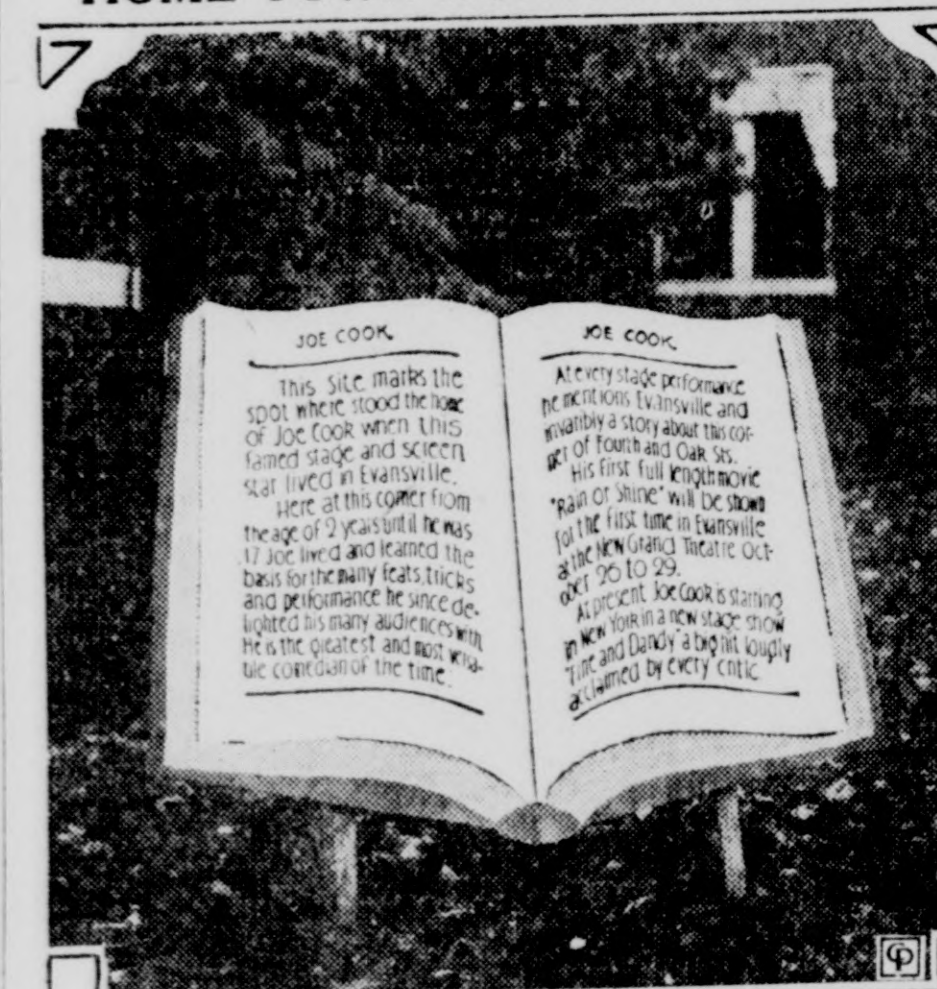 HOME
JOE COOK
This site marks the
spot where stood the home
of Joe Cook when this
famed stage and screen
star lived in Evansville.
Here at this corner from
the age of 2 years until he was
17 Joe lived and learned the
basis for the many feats, tricks
and performance he since de-
lighted his many audiences with
He is the greatest and most versa-
tile comedian of the time.
JOE COOK
At every stage performance
he mentions Evansville and
invaribly a story about this cor-
ner of Fourth and Oak Sts.
His First full length movie
"Rain or Shine" will be shown
for the first time in Evansville
at the New Grand Theatre Oct-
ober 26 to 29.
At present Joe Cook is starring
in New York in a new stage show
"Fine and Dandy" a big hit loudly
acclaimed by every critic
CP